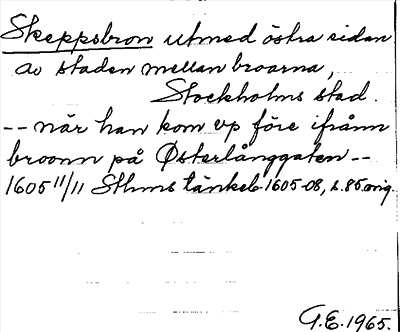 Skeppsbron utmed östra sidan
av staden mellan broarna,
Stockholms stad.
-- när han kom op före ifrånn
broonn på Østerlånggaten --
1605 11/11 Sthms tänkeb. 1605-08, s. 85 orig.
G.E. 1965.